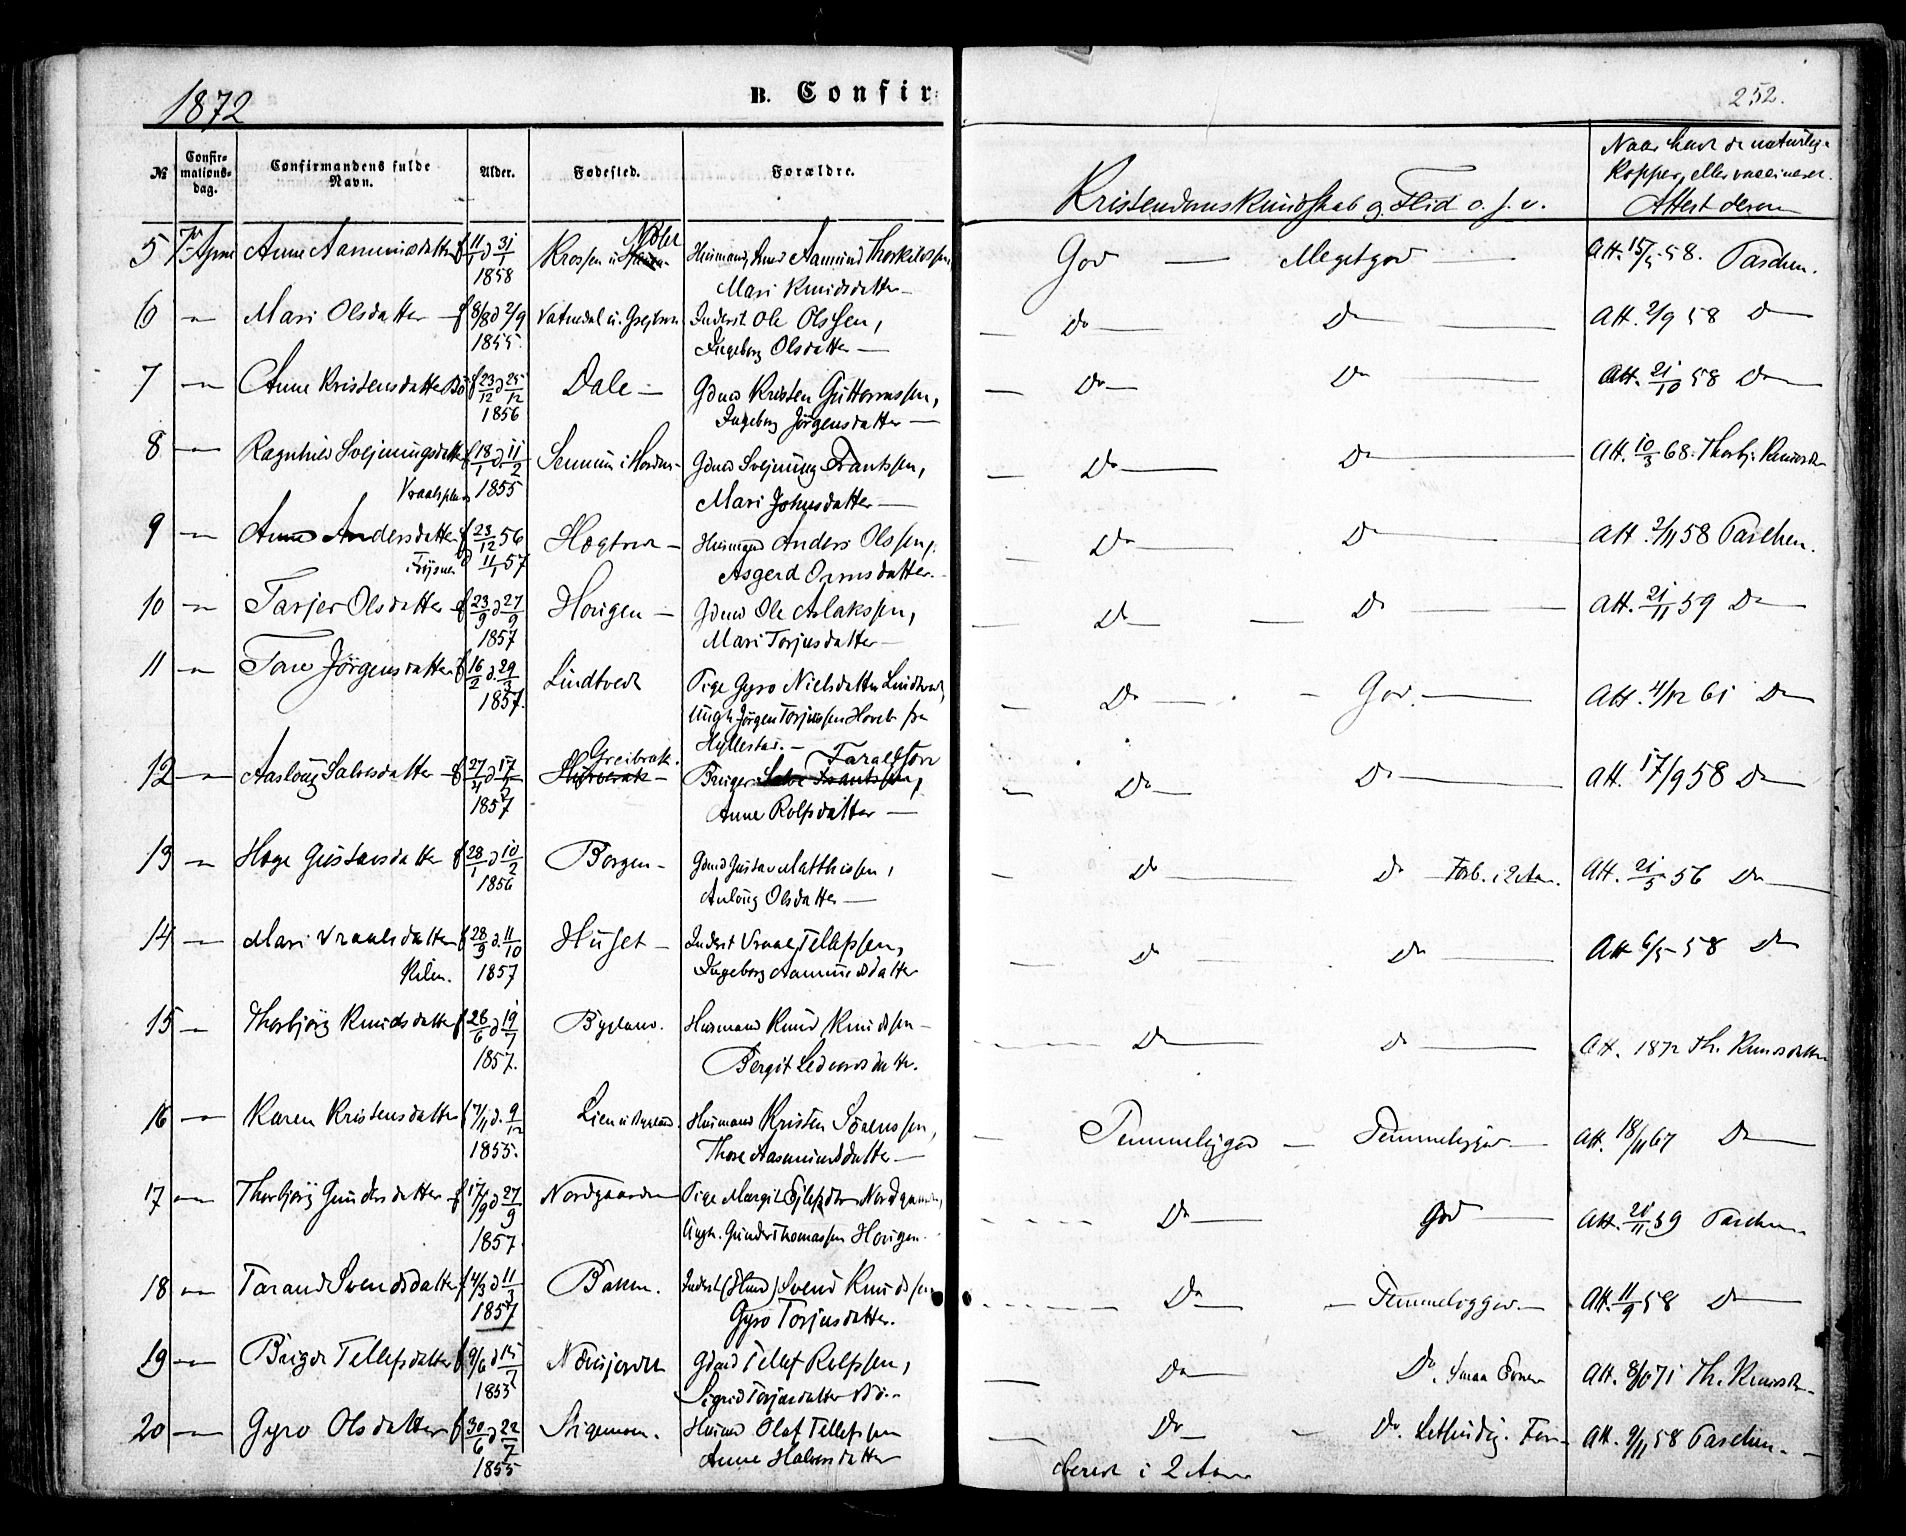 1872
B. Confir-
252.
№
Confirmationsdag.
Confirmandens fulde Navn.
Alder.
Fødested.
Forældre.
Kristendomskundskab og Flid o. s. v.
Naar havt de naturlige Kopper, eller vaccineret. Attest derom
5 Anne Aamundsdatter f 11/1 d 31/1 1858 Krossen u. Huusmand Aamund Thorkildssen, Mari Knudsdatter — God — Meget god — Att. 58. Paschen.
6 — Mari Olsdatter — f 8/8 d 2/9 1855. Vatnedal u. Inderst Ole Olssen, Ingeborg Olsdatter — Do — Do — Att. 2/9 58 Do
7 — Anne Kristensdatter f 23/12 d 25/12 1856 Dale — Gdmd Kristen Guttormssen, Ingeborg Jörgensdatter — Do — Do — Att. 21/10 58 Do
8 — Ragnhild Svejnungsdatter f 18/1 d 11/2 1855 Sennum i Gdmd Svejnung Frantssen, Mari Johnsdatter — Do — Do — Att. 10/3 68. Thorbj. Knudsdtr
9 — Anne Andersdatter f 23/12 56 d 11/1 57 — Huusmand Anders Olssen, Asgerd Ormsdatter. — Do — Do — Att. 2/11 58 Paschen.
10 — Tarjer Olsdatter f 23/9 d 27/9 1857 Hougen — Gdmd Ole Aslakssen, Mari Torjusdatter — Do — Do — Att. 21/11 59 Do
11 — Tone Jörgensdatter f 16/2 d. 29/3 1857. Lindtvedt Pige Gyro Nielsdatter Lindtvedt, Ungk. Jörgen Torjussen Hovet fra Hyllestad. — Do — God. — Att. 4/12 61 Do
12 — Aaslöug Salvesdatter — f 27/4 d 17/5 1857 Greibrok. Taraldsen Bruger Salve Frantssen, Anne Rolfsdatter — Do — Do — Att. 17/9 58 Do
13 — Hæge Gustavsdatter f 28/1 d 10/2 1856 Borgen — Gdmd Gustav Matthissen, Anlöug Olsdatter — Do — Do Forb. i 2 Aar. Att. 21/5 56 Do
14 — Mari Vraalsdatter Kilen. f 28/9 d. 11/10 1857 Huset — Inderst Vraal Tellefssen, Ingeborg Aamundsdatter — Do — Do — Att 6/5 58 Do
15 — Thorbjörg Knudsdatter f 28/6 d 19/7 1857. Bygland. Huusmand Knud Knudssen — Bergit Ledvorsdatter. Do — Do — Att. 1872 Th. Knudsdatter
16 — Karen Kristensdatter 17/11 d. 9/12 1855. Lien u. Bygland. Huusmand Kristen Sörenssen, Thore Aasmundsdatter — Temmelig god — Temmelig god — Att. 18/11 67 Do
17 — Thorbjörg Gundersdatter — f 17/9 d 27/9 1857. Nordgaarden Pige Margit Nordgaarden, Ungk. Gunder Thomassen Hougen. Do — God — Att. 59 Paschen
18 — Tarand Svendsdatter f 4/3 d 11/3 1857 Bakken. Inderst Svend Knudssen Gyro Torjusdatter. Do — Temmelig god. — Att. 11/9 58 Do
19 — Birgit Tellefsdatter f 9/6 d 15/7 1855 Gdmd Tellef Rolfssen, Sigrid Torjusdatter — Do — Do. Smaa Evner Att. 8/10 71 Th. Knudsdtr.
20 — Gyro Olsdatter f 30/6 d 22/7 1855 Huusmd Olaf Tellefssen Anne Halvorsdatter — Do — Do. Letsindig. Forberedt i 2 Aar Att. 9/11 58 Paschen.